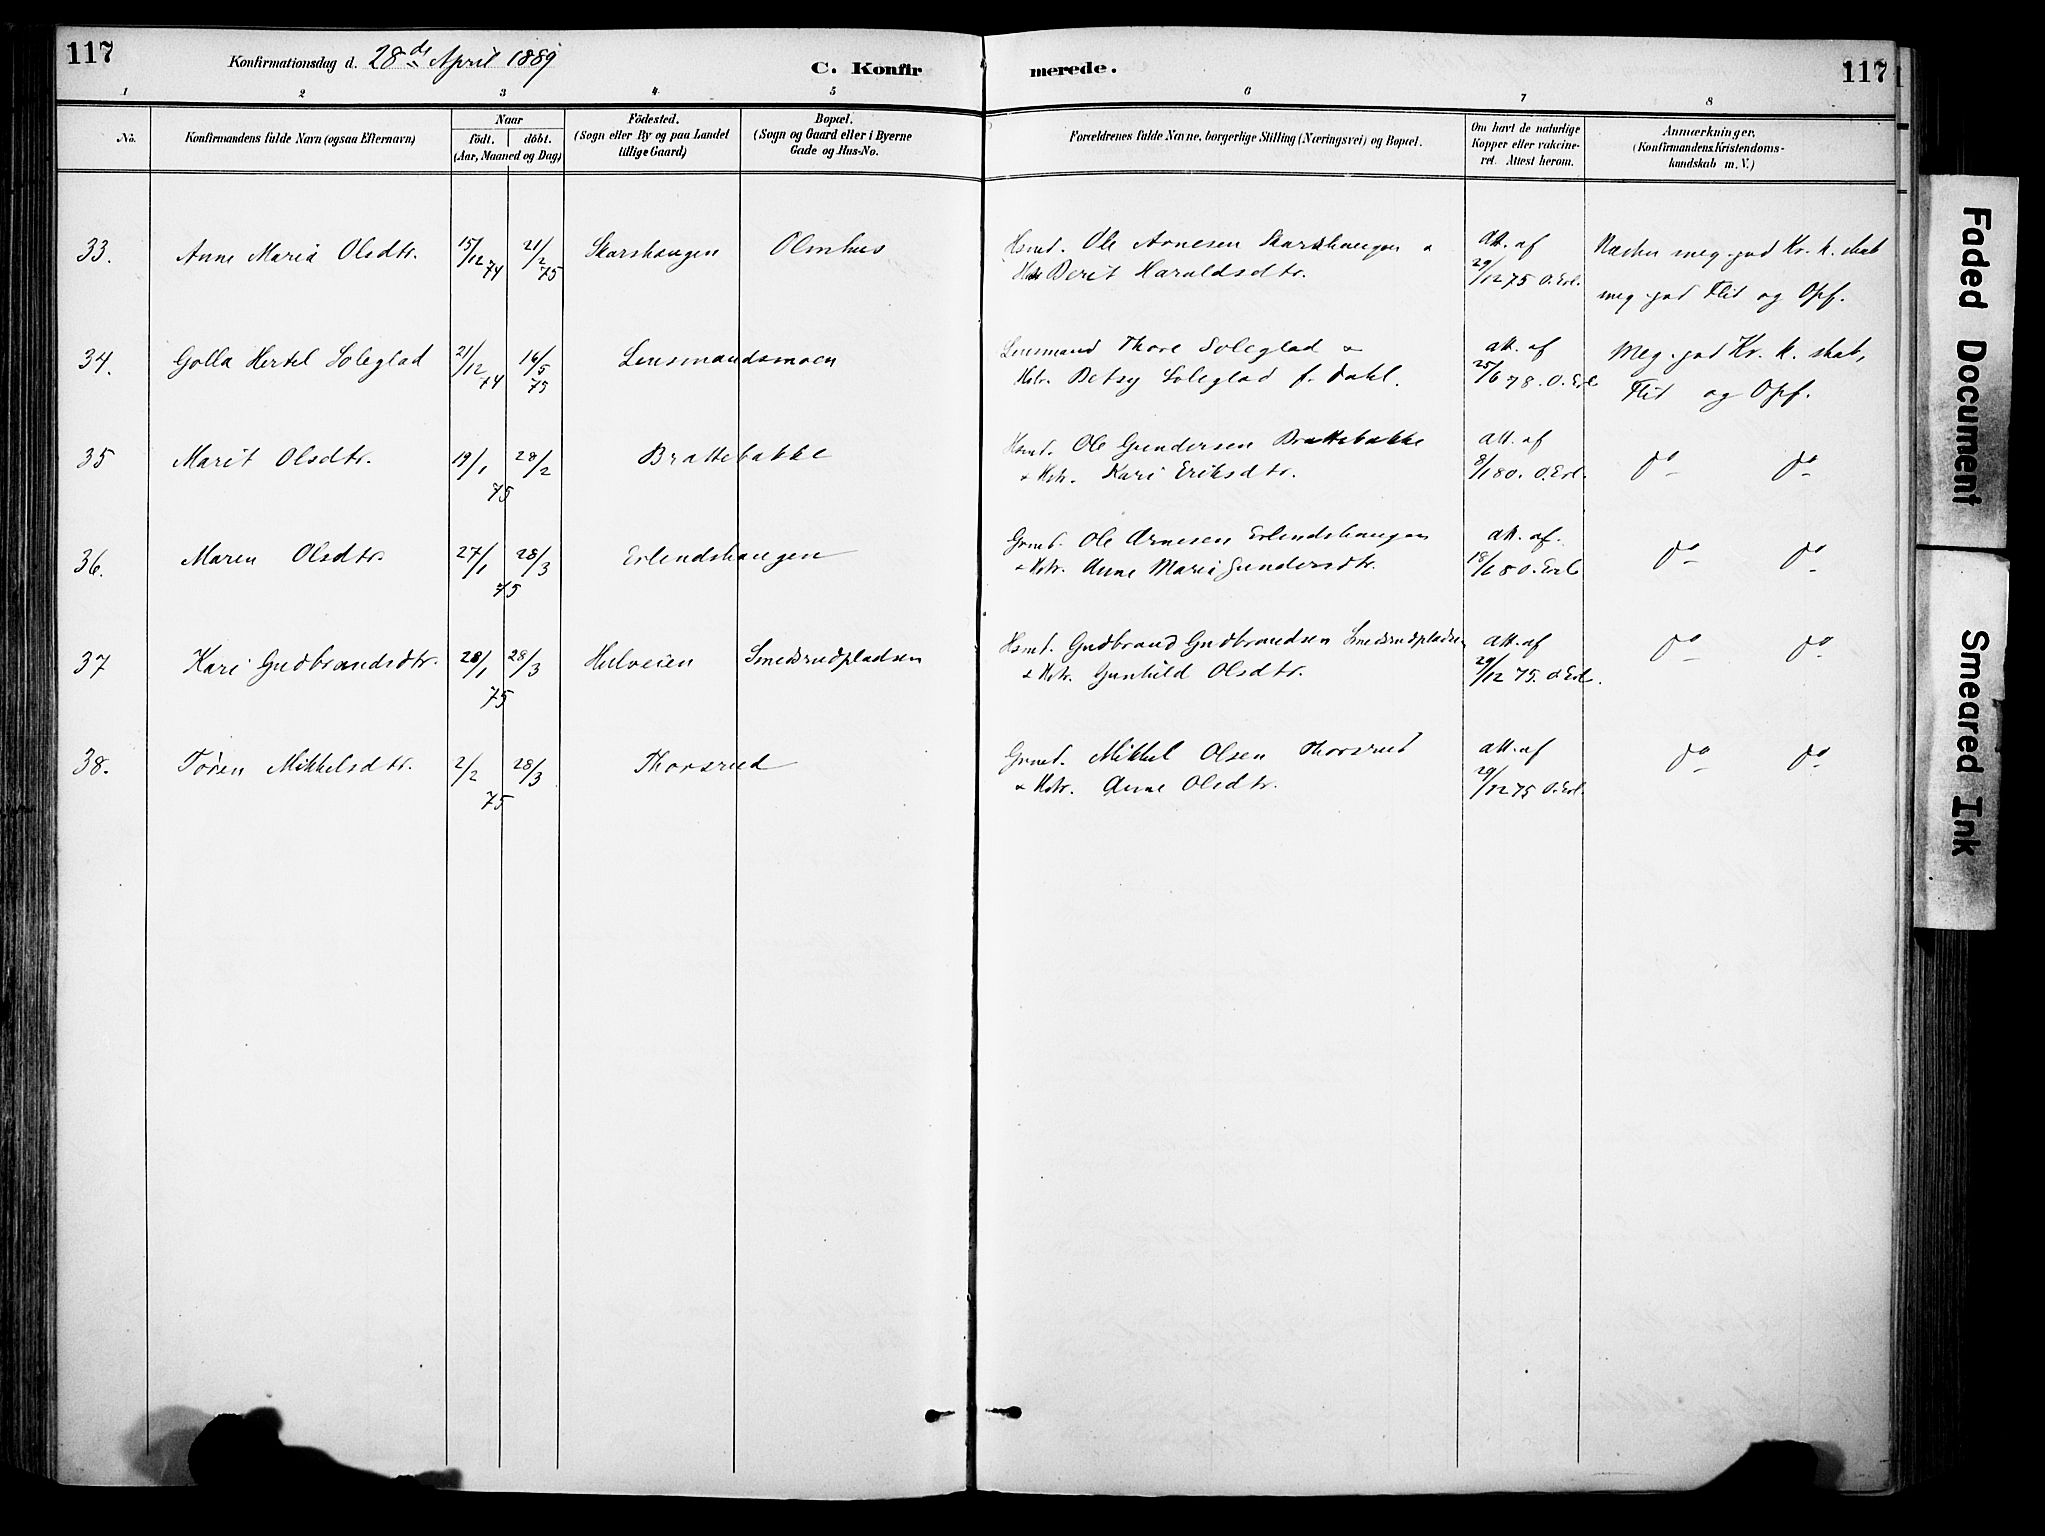 117
Konfirmationsdag d. 28de April 1889
C. Konfirmerede.
117
1 2 3 4 5 6 7 8
No.
Konfirmandens fulde Navn (ogsaa Efternavn)
Naar
födt. döbt.
(Aar, Maaned og Dag)
Födested.
(Sogn eller By og paa Landet
tillige Gaard)
Bopæl.
(Sogn og Gaard eller i Byerne
Gade og Hus-No.
Forældrenes fulde Navne, borgerlige Stilling (Næringsvei) og Bopæl.
Om havt de naturlige
Kopper eller vakcine-
ret. Attest herom.
Anmærkninger,
(Konfirmandens Kristendoms-
kundskab m. V.)
33. Anne Maria Olsdtr. 15/12 74 21/2 75 Skarshaugen Olmhus Hsmd. Ole Arnesen Skarshaugen &
Berit Haraldsdtr.
att. af
29/12 75 O. Erl.
Næsten meg. god Kr. k. skab
meg. god Flid og Opf.
34. Golla Hertel Soleglad 21/12 74 16/5 75 Lensmandsmoen Lensmand Thore Soleglad &
Hstr. Betsy Soleglad f. Dahl.
att. af
25/6 78. O. Erl
Meg. god Kr. k. skab,
Flid og Opf.
35 Marit Olsdtr. 19/1 28/2 75 Brattebakke Hsmd. Ole Gundersen Brattebakke
& Hstr. Kari Eriksdtr.
att. af
8/1 80. O. Erl.
do do
36. Maren Olsdtr. 27/1 28/3 75 Erlendshaugen Grmd. Ole Arnesen Erlendshaugen
& Hstr. Anne Mari Gundersdtr.
att. af.
18/1 80. Erl
do do
37 Kari Gudbrandsdtr. 28/1 28/3 75 Hulveien Smedsrudpladsen Hsmd. Gudbrand Gudbrandsen Smedsrudpladsen
& Hstr. Gunhild Olsdtr.
att. af
29/12 75. O. Erl.
do do
38. Toren Mikkelsdtr. 2/2 28/3 75 Thorsrud Grmd. Mikkel Olsen Thorsrud
& Hstr. Anne Olsdtr.
att. af
29/12 75 O. Erl.
do do
Faded Document
Smeared Ink